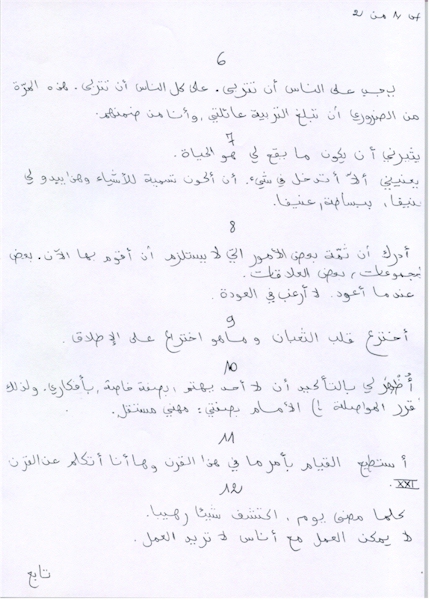 ص ٨ من ٢
6
يجب على الناس أن تتربى. على كل الناس أن تتربى. هذه المرّة
من الضروري أن تبلغ التربية عائلتي، وأنا من ضمنهم.
7
يثيرني أن يكون ما يقع لي هو الحياة.
يعنيني ألاّ أتدخل في شيء. أن أكون تسمية للأشياء وهذا يبدو لي
عنيفا، ببساطة، عنيفا.
8
أدرك أن ثمّة بعض الأمور التي لا يستلزم أن أقوم بها الآن. بعض
المجموعات، بعض العلاقات.
عندما أعود. لا أرغب في العودة.
9
أخترع قلب الثعبان وما هو اختراع على الإطلاق.
10
أُظهِرَ لي بالتأكيد أن لا أحد يهتم، بصفة خاصة، بأفكاري. ولذلك
نقرر المواصلة إلى الأمام بصفتي: مهني مستقل.
11
أستطيع القيام بأمر ما في هذا القرن وها أنا أتكلم عن القرن
XXI.
12
كلما مضى يوم، اكتشف شيئا رهيبا.
لا يمكن العمل مع أناس لا تريد العمل.
تابع